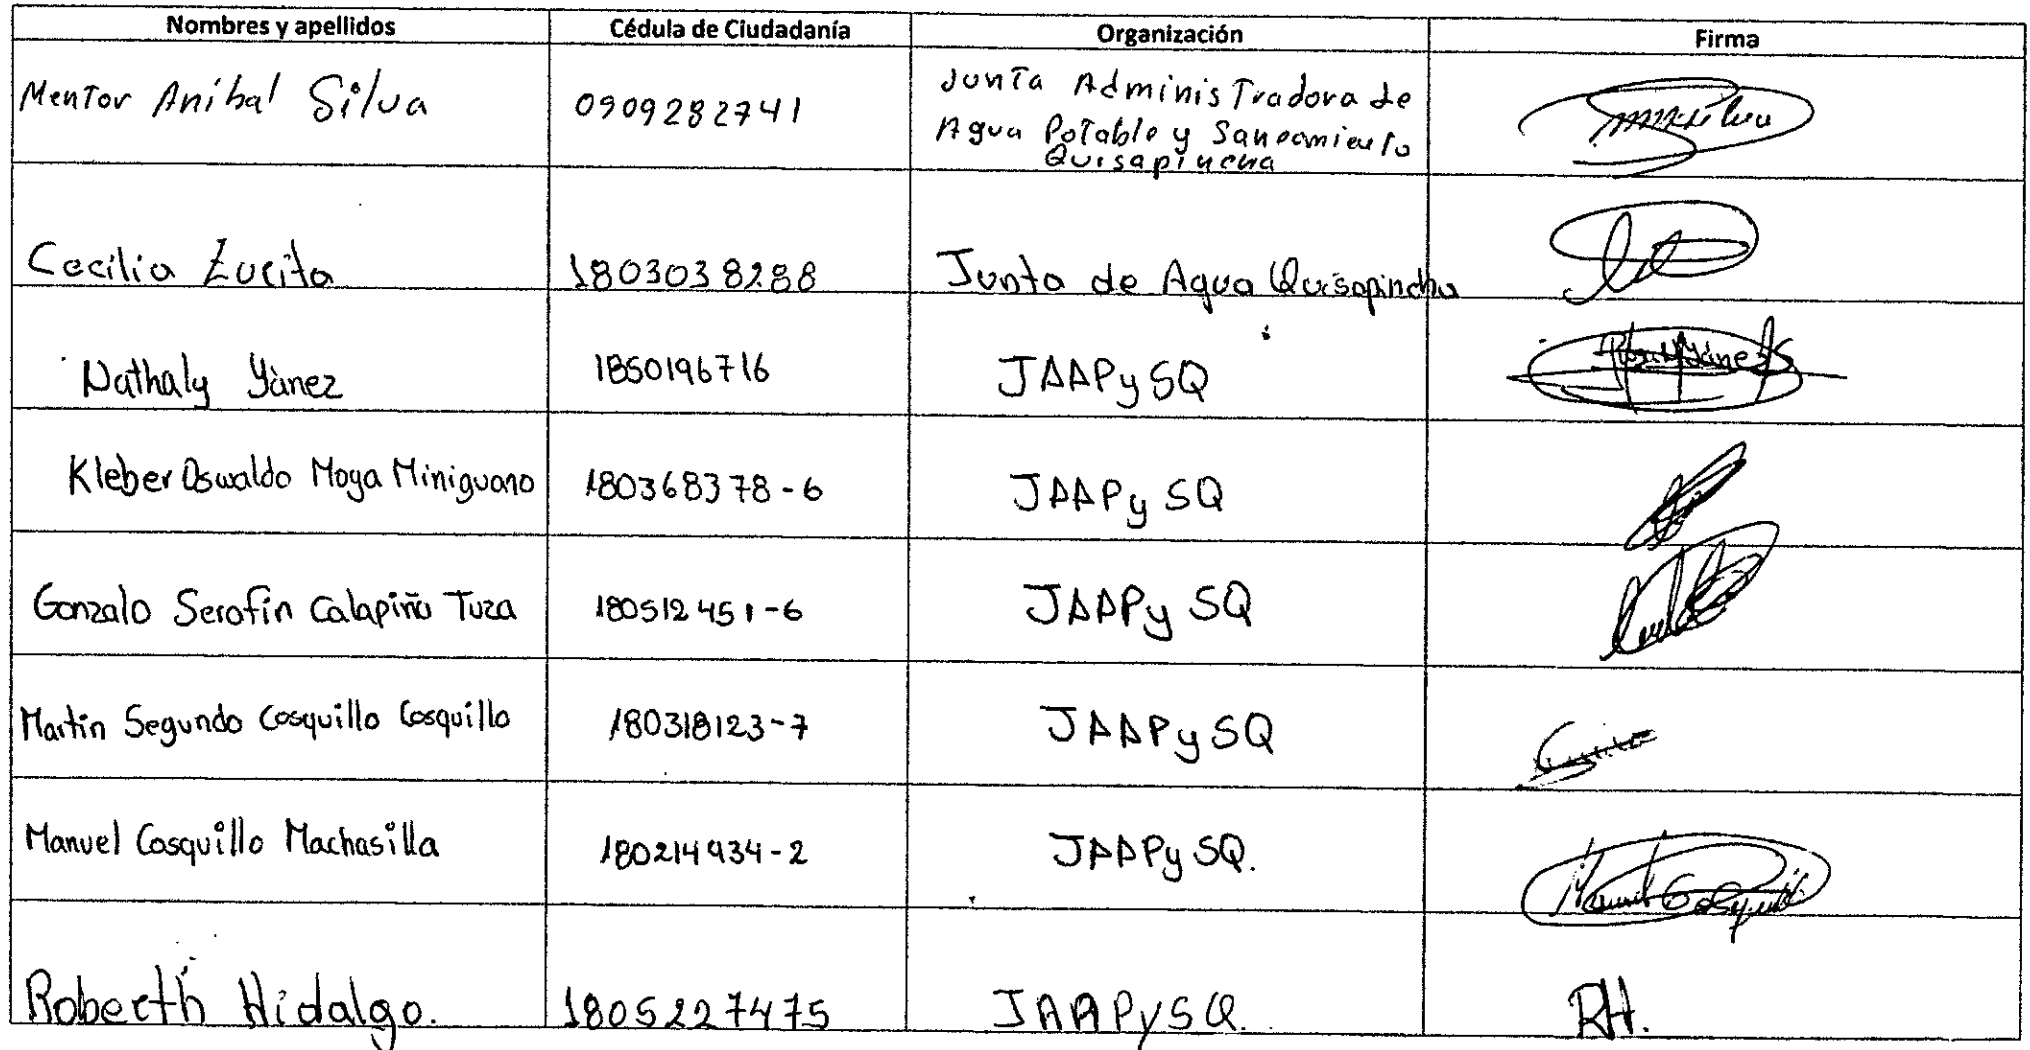 Nombres y apellidos Cédula de Ciudadanía Organización Firma
Mentor Aníbal Silva 0909282741 Junta Administradora de
Agua Potable y Saneamiento
Quisapincha
Cecilia Zurita 1803038288 Junta de Agua Quisapincha
Nathaly Yànez 1850196716 JAAPySQ
Kleber Oswaldo Moya Miniguano 180368378-6 JAAPySQ
Gonzalo Serafín Calapiña Tuza 180512451-6 JAAPySQ
Martín Segundo Cosquillo Cosquillo 180318123-7 JAAPySQ
Manuel Cosquillo Machasilla 180214934-2 JAAPySQ. Manuel Cosquillo
Roberth Hidalgo. 1805227475 JAAPySQ. RH.